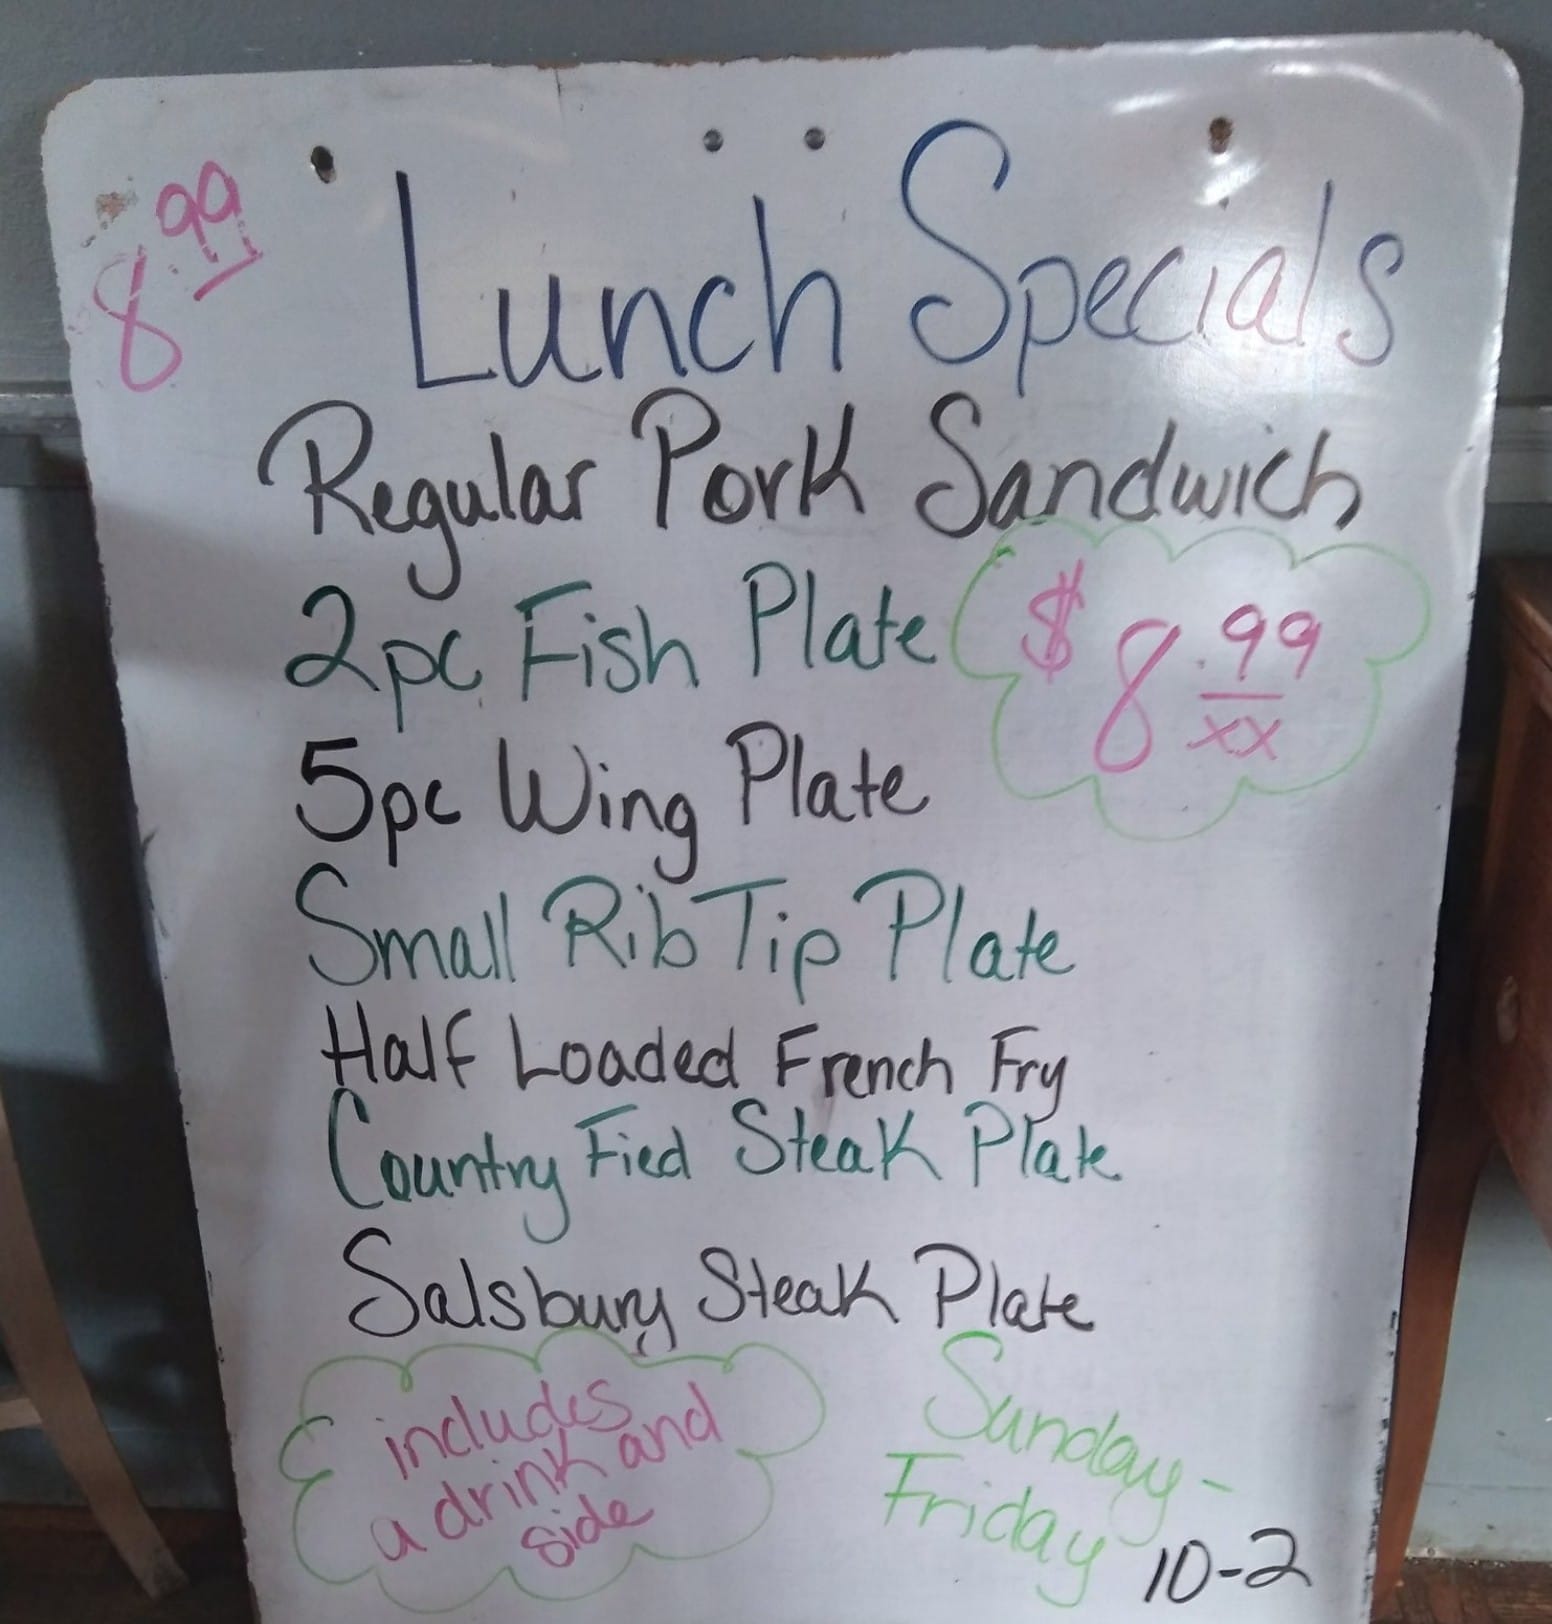 8.99
Lunch Specials
Regular Pork Sandwich
2pc Fish Plate
$8.99
xx
5pc Wing Plate
Small Rib Tip Plate
Half Loaded French Fry
Country Fied Steak Plate
Salsbury Steak Plate
includes
a drink and
side
Sunday-
Friday
10-2